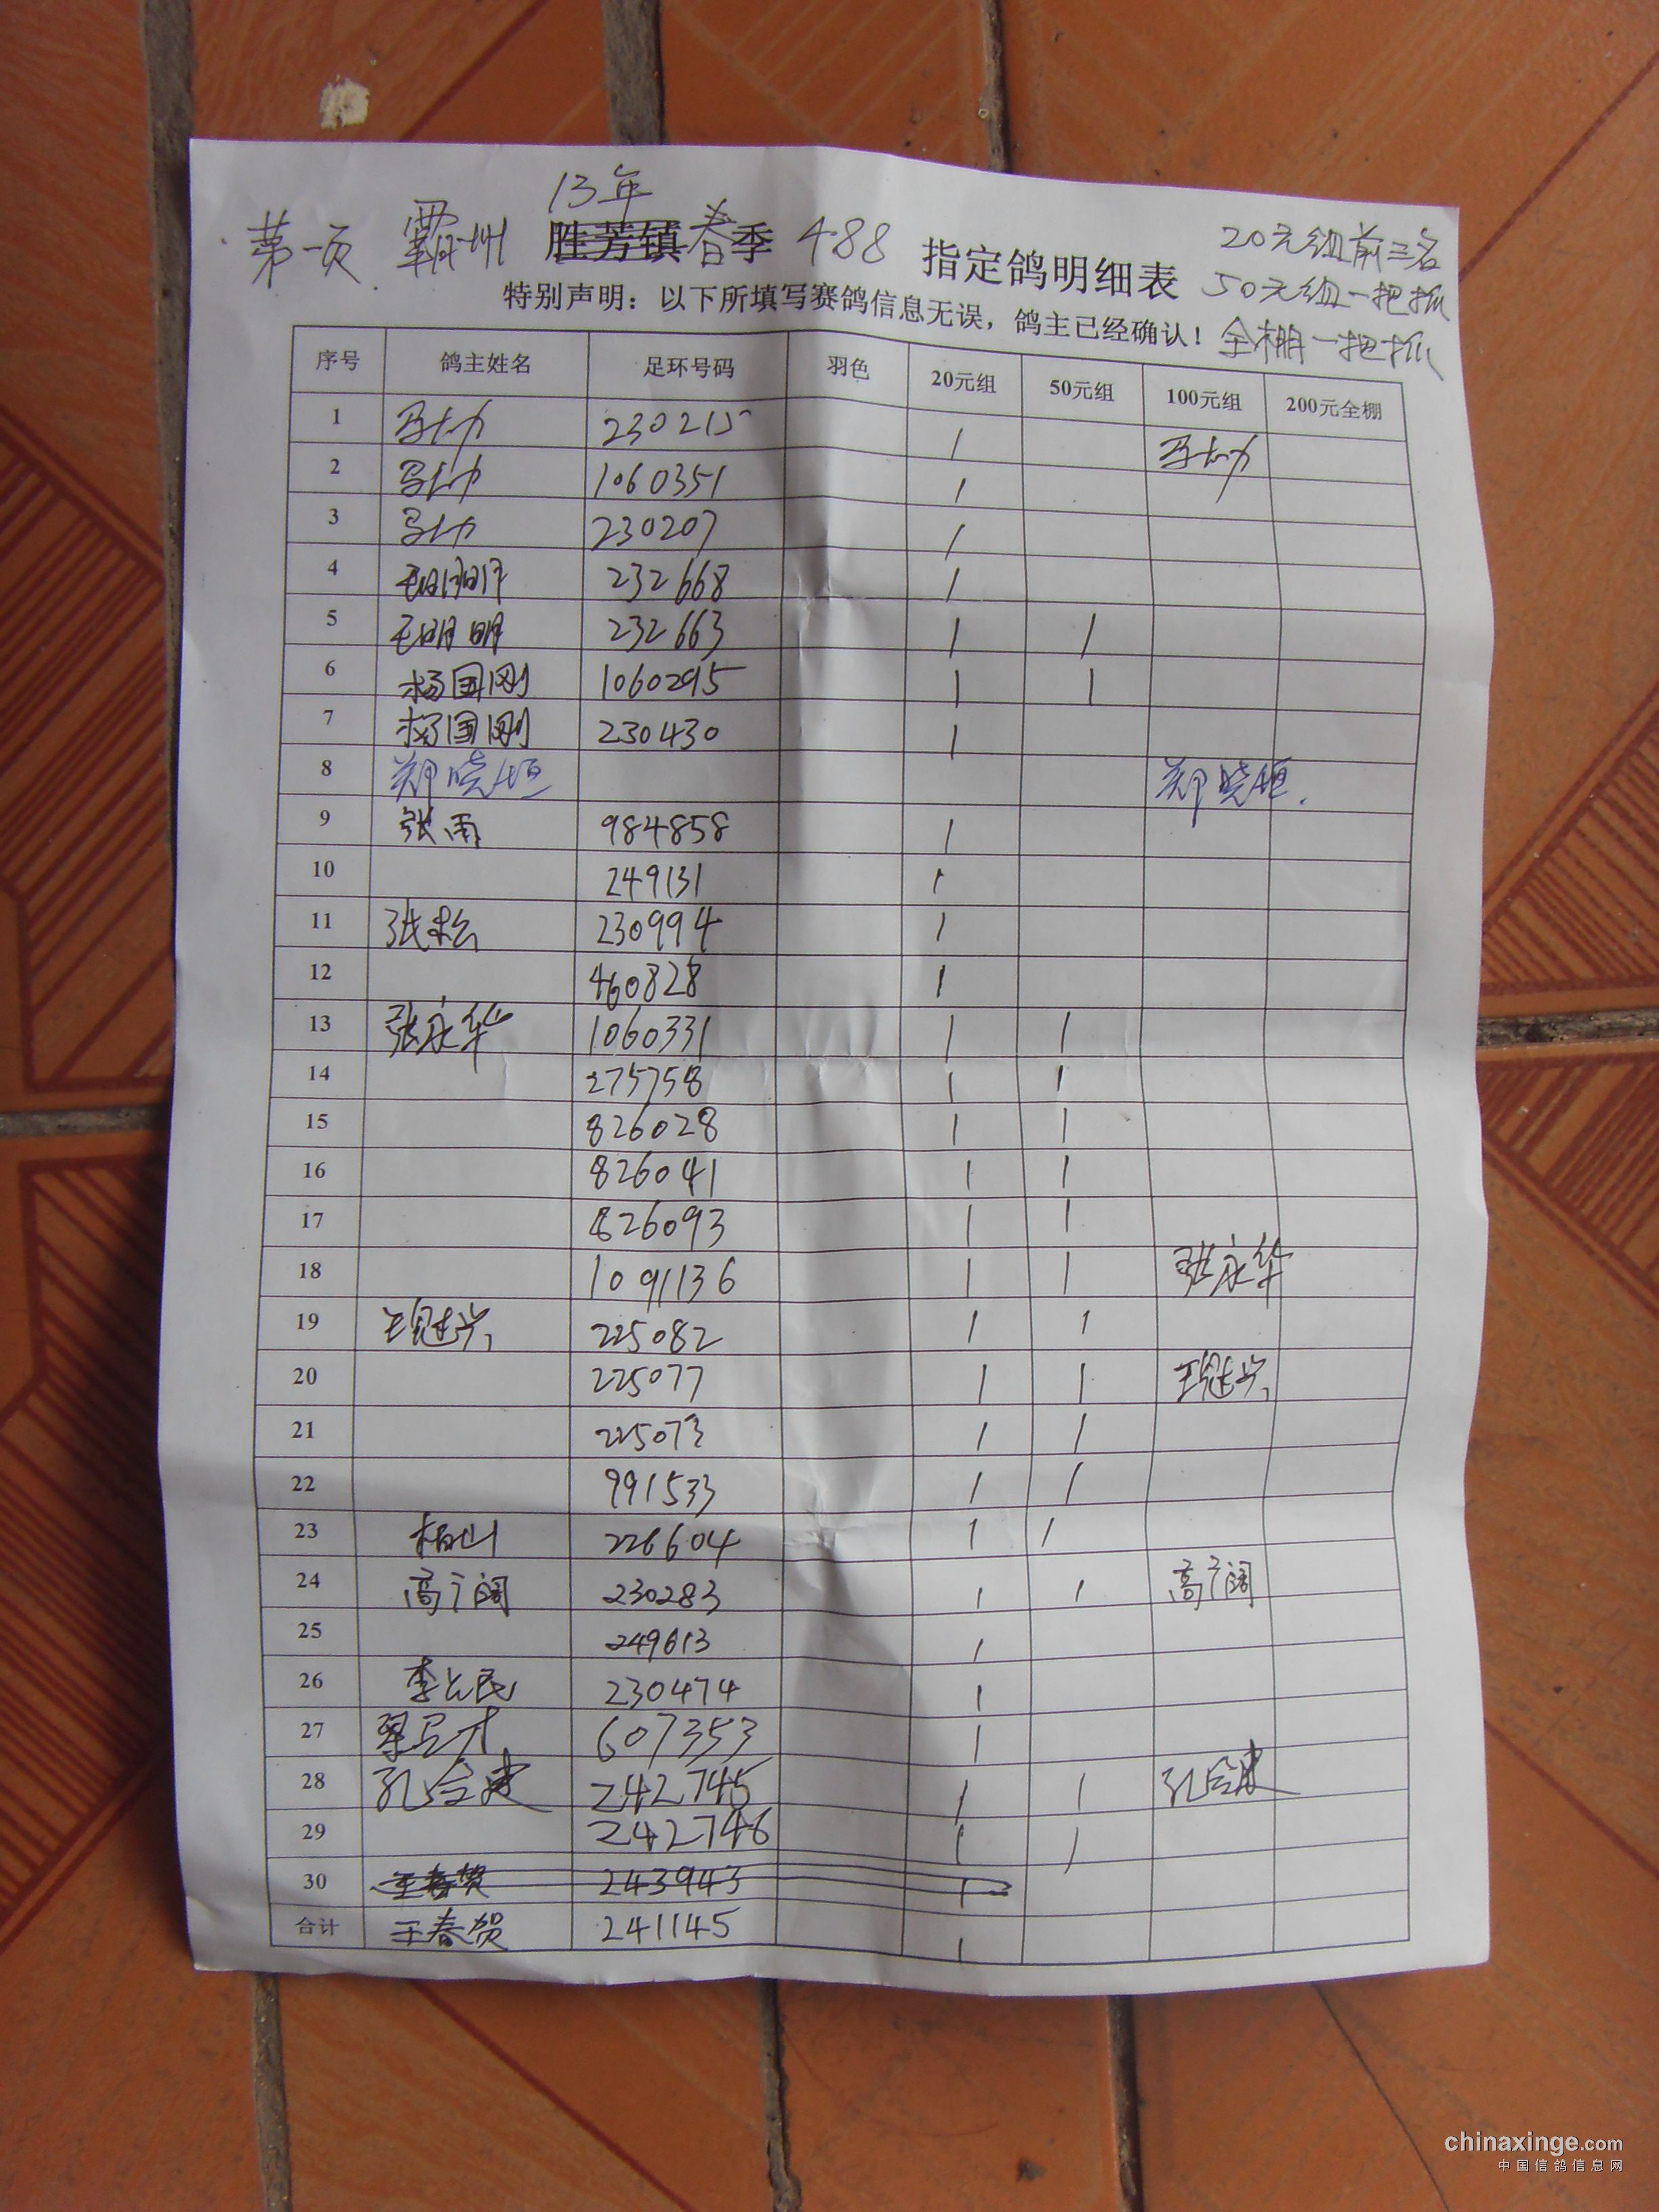 13年
第一页 霸州 胜芳镇春季 488 指定鸽明细表
20元组前三名
50元组一把抓
全棚一把抓
特别声明：以下所填写赛鸽信息无误，鸽主已经确认！
序号 鸽主姓名 足环号码 羽色 20元组 50元组 100元组 200元全棚
1 230215 1
2 1060351 1
3 230207 1
4 232668 1
5 王明明 232663 1 1
6 杨国刚 1060295 1 1
7 杨国刚 230430 1
8 郑晓恒 郑晓恒.
9 张雨 984858 1
10 249131 1
11 张松 230994 1
12 460828 1
13 张永华 1060331 1 1
14 275758 1 1
15 826028 1 1
16 826041 1 1
17 826093 1 1
18 1091136 1 1 张永华
19 225082 1 1
20 225077 1 1
21 225073 1 1
22 991533 1 1
23 柏山 226604 1 1
24 高广阔 230283 1 1 高广阔
25 249613 1
26 230474 1
27 607353 1
28 孔会建 242745 1 1 孔会建
29 242746 1 1
30 王春贺 243943 1
合计 王春贺 241145 1
chinaxinge.com
中国信鸽信息网